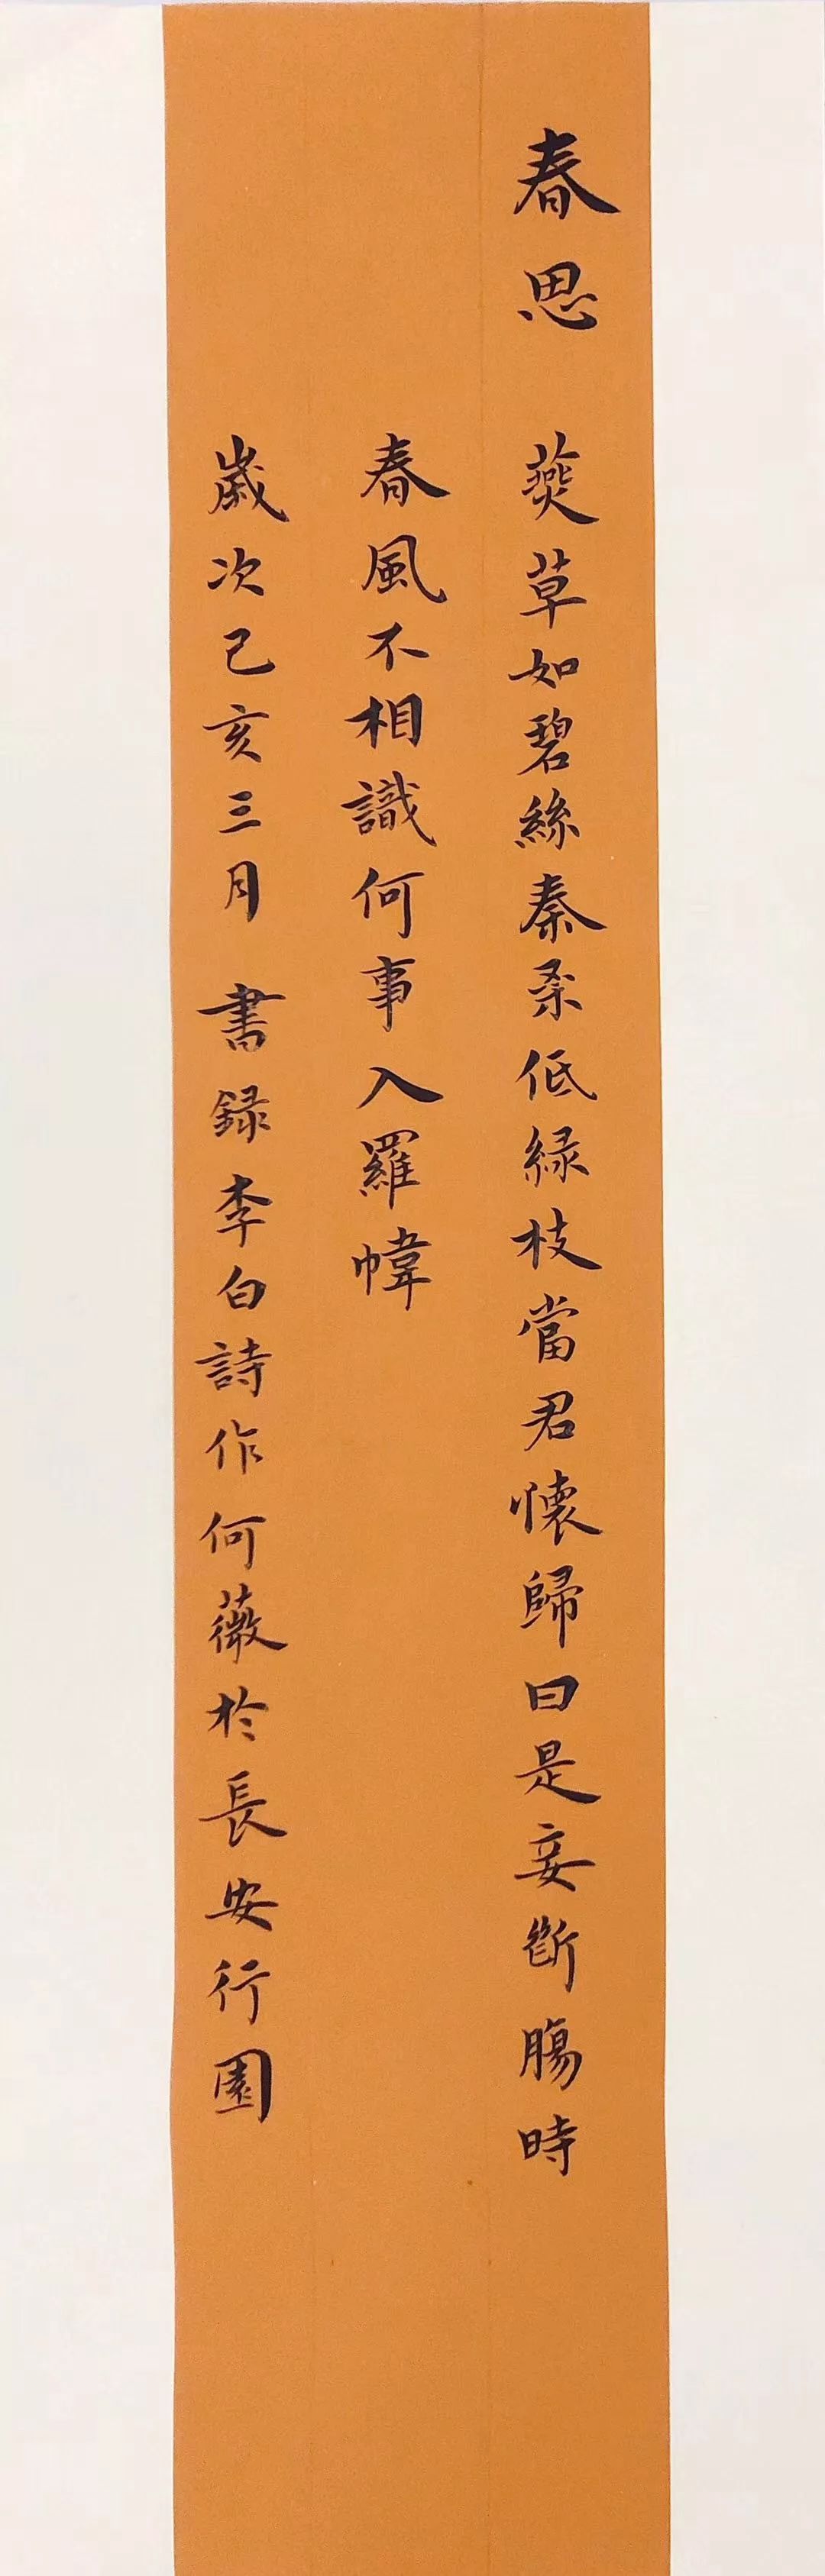 春思 燕草如碧絲秦桑低緑枝當君懷歸曰是妾斷腸時
春風不相識何事入羅幃
歲次己亥三月 書録李白詩作何薇於長安行園